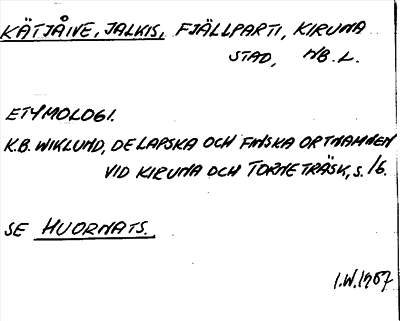 KÄTJÅIVE, JALKIS, FJÄLLPARTI, KIRUNA
STAD, NB.L.
ETYMOLOGI.
K.B. WIKLUND, DE LAPSKA OCH FINSKA ORTNAMNEN
VID KIRUNA OCH TORNETRÄSK, S. 16.
SE HUORNATS.
I.W. 1957